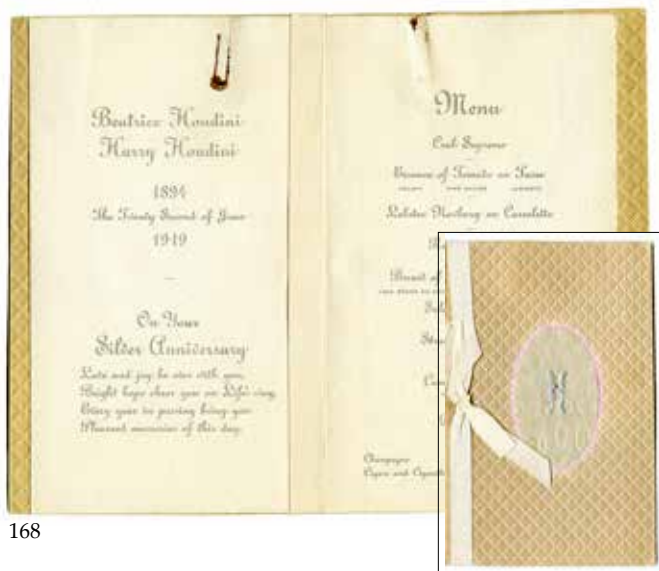 Beatrice Houdini
Harry Houdini
1894
The Twenty Second of June
1919
On Your
Silver Anniversary
Love and joy be ever with you,
Bright hope cheer you on Life's way,
Every year in passing bring you
Pleasant memories of this day.
Menu
Crab Supreme
Essence of Tomato en Tasse
Lobster Newburg en Casselette
Breast of
Champagne
Cigars and Cigarettes
H
168